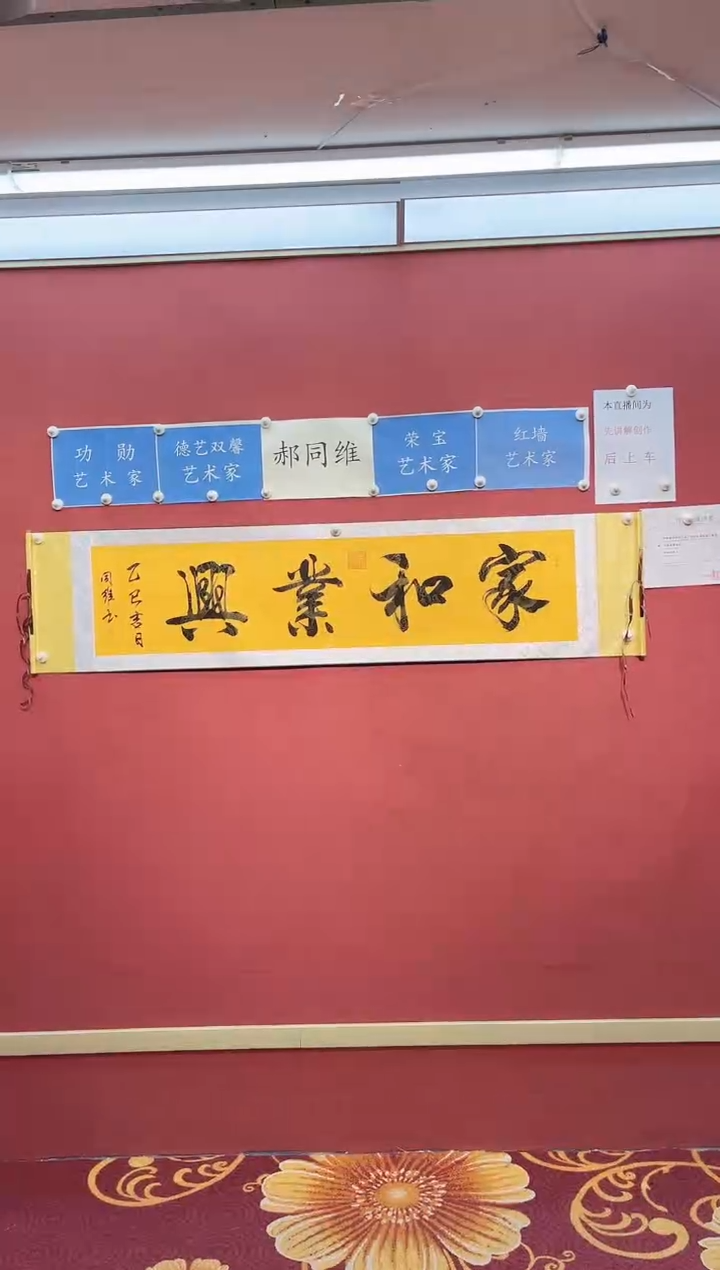 功 勋
艺 术 家
德艺双馨
艺术家
郝同维
荣 宝
艺术家
红墙
艺术家
本直播间为
先讲解创作
后 上 车
家和業興
乙巳吉日
同維书